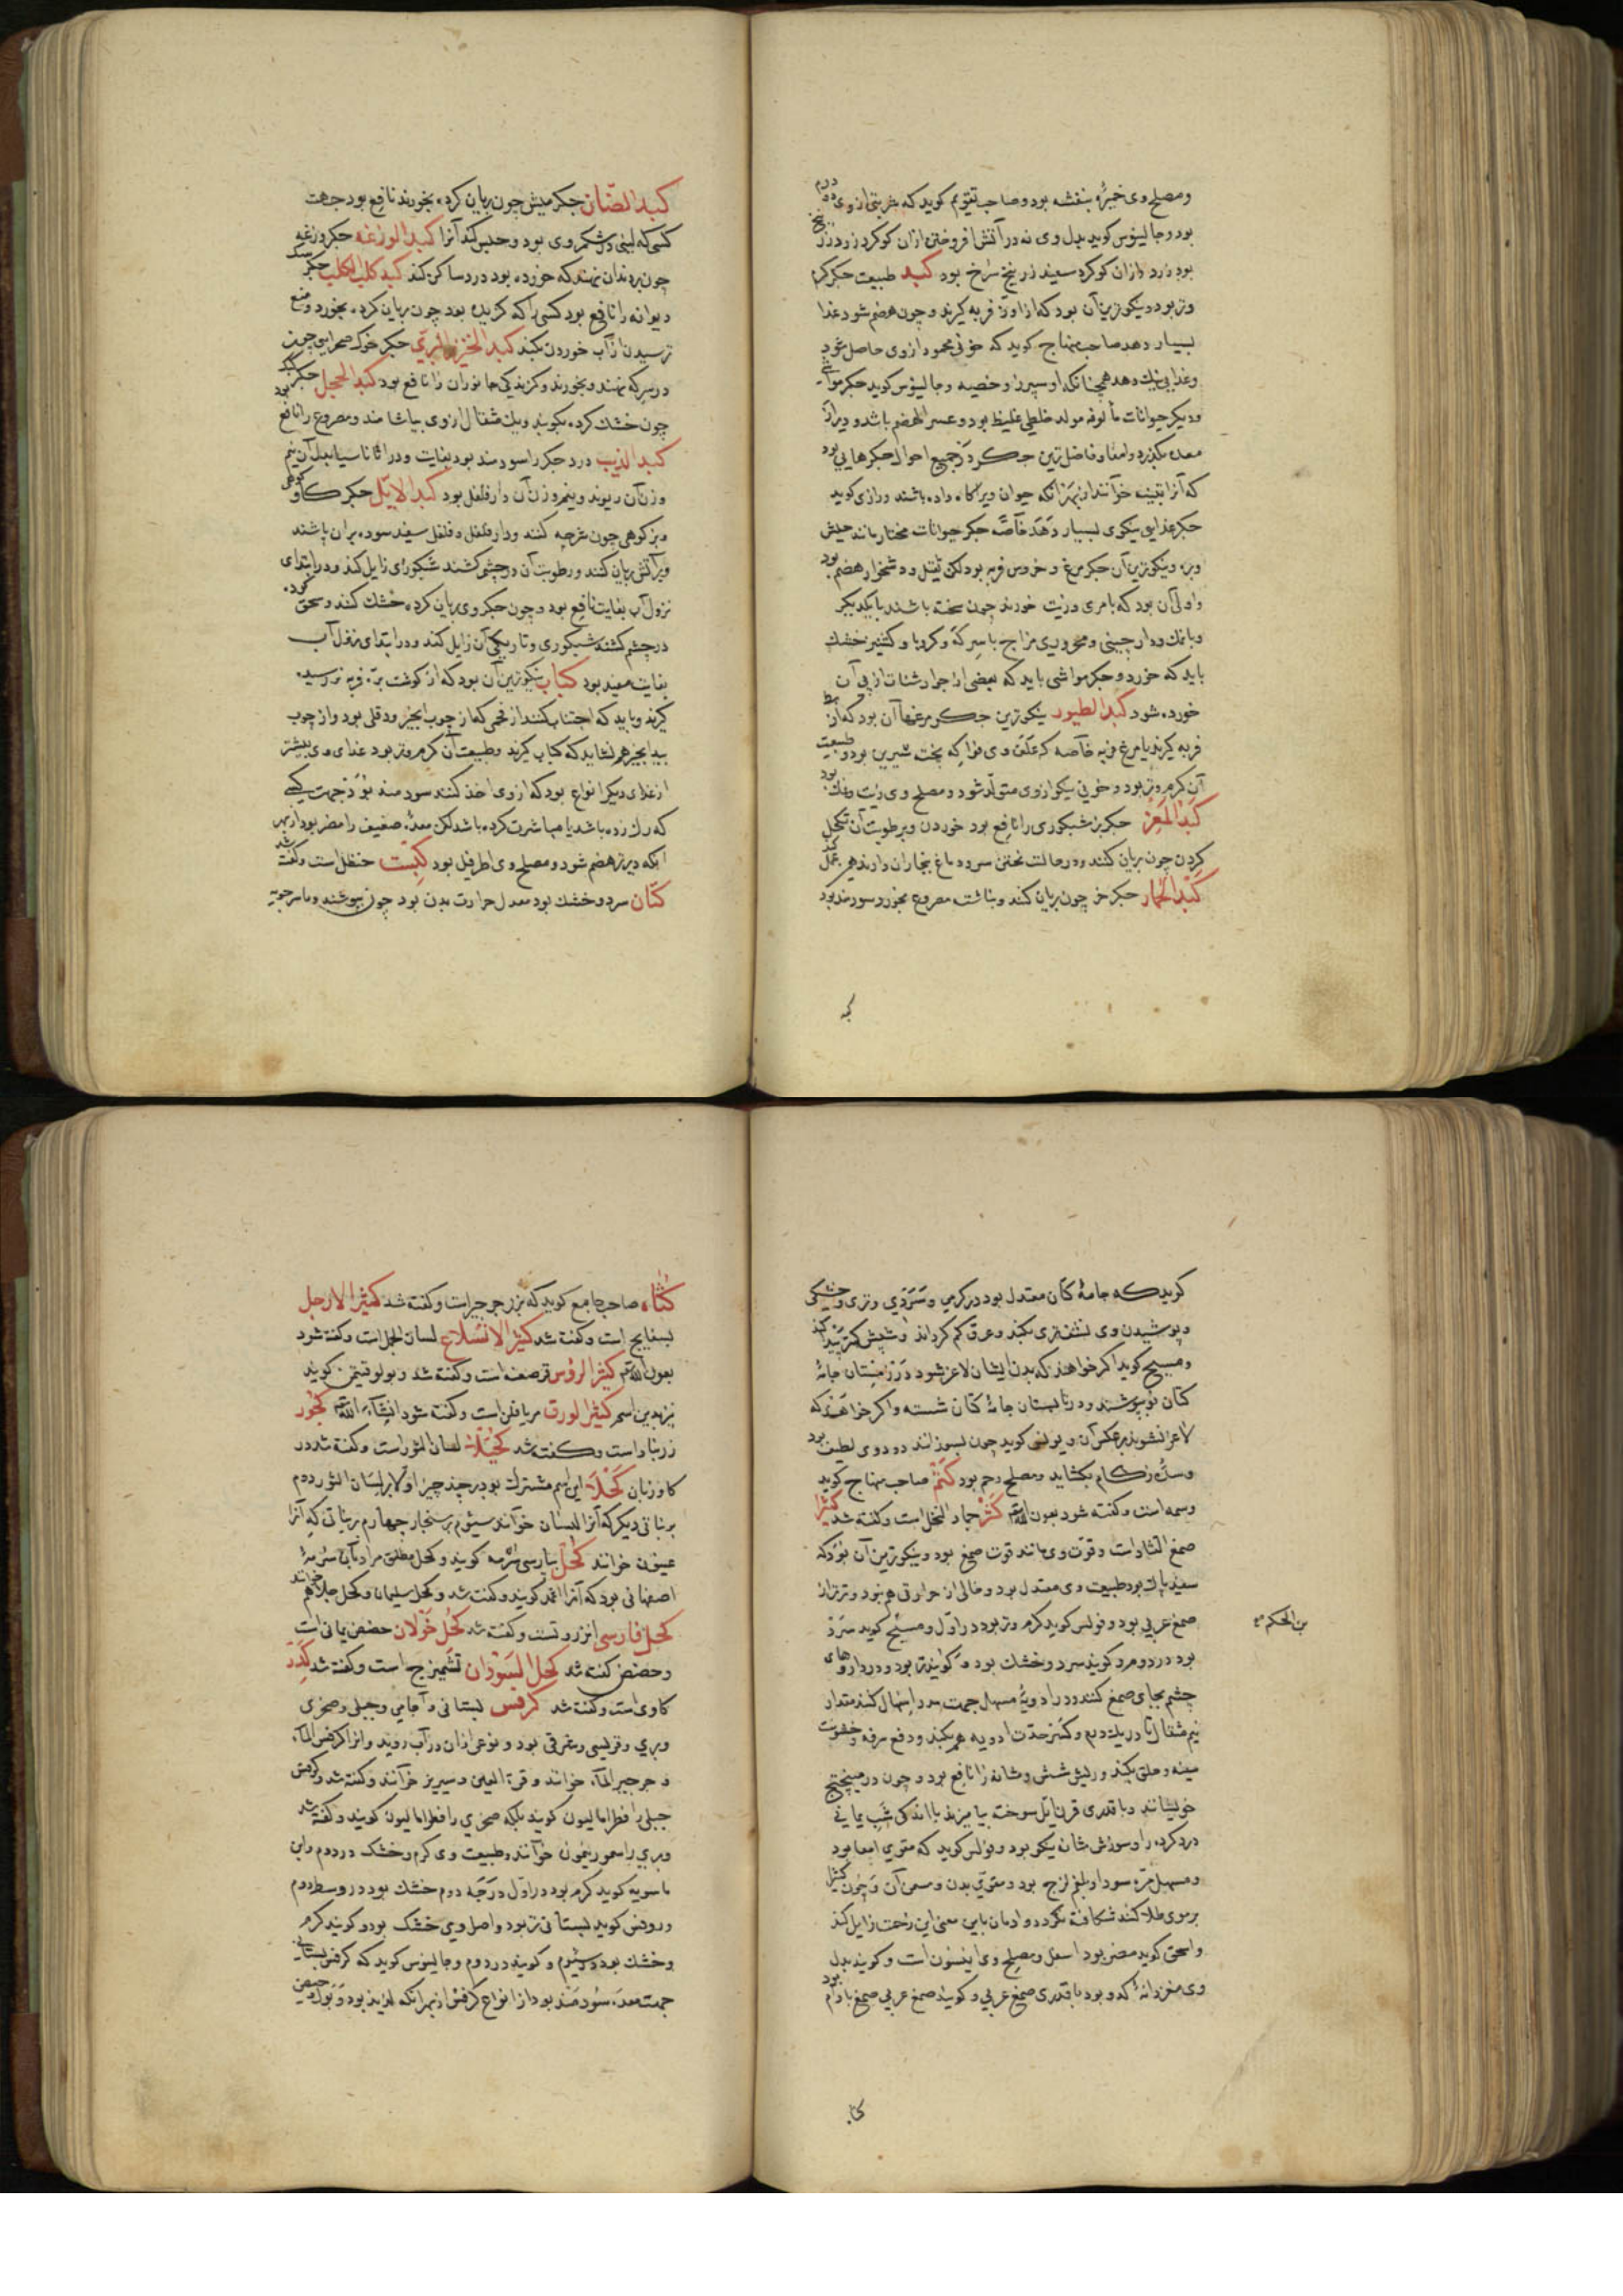 ومصلح وی خمیره بنفشه بود و صاحب تقویم کوید که شربتی از وی دو درم
بود و جالینوس کوید بدل وی نه در آتش افروختن ازان کوکرد زرد زرنیخ
بود زرد و ازان کوکرد سفید زرنیخ سرخ بود کبد طبیعت جکر کرم
وتر بود و نیکوترین آن بود که از اوز فربه کیرند و چون هضم شود غذا
بسیار دهد صاحب منهاج کوید که خونی محمود از وی حاصل شود
وغذایی نیک دهد همچنانکه از سپرز و خصیه و جالینوس کوید جکر مواشی
ودیکر حیوانات مألوفه مولد خلطی غلیظ بود و عسر الهضم باشد و دیر از
معده بکذرد و امعا و فاضل ترین جکر در جمیع احوال جکرهایی بود
که آنرا تینیه خوانند از بهر آنکه حیوان ویرا کاه داده باشند و رازی کوید
جکر غذایی نیکوی بسیار دهد خاصه جکر حیوانات مختار مانند میش
وبره و نیکوترین آن جکر مرغ و خروس فربه بود لکن ثقیل و دشخوار هضم بود
واولی آن بود که بامری و زیت خورند چون پخته باشند با یکدیکر
وبانمک و دارچینی و محروری مزاج با سرکه و کرویا و کشنیز خشک
باید که خورد و جکر مواشی باید که بعضی از جوارشنات از پی آن
خورده شود کبد الطیور نیکوترین جکر مرغها آن بود که از بط
فربه کیرند یا مرغ فربه خاصه که علف وی فواکه پخت شیرین بود و طبیعت
آن کرم و تر بود و خونی نیکو از وی متولد شود و مصلح وی زیت و نمک بود
کبد المعز جکر بز شبکوری را نافع بود خوردن و برطوبت آن تکحل
کردن چون بریان کنند و در حالت پختن سر و دماغ ببخار آن دارند هم عمل کند
کبد الحمار جکر خر چون بریان کنند و بناشتا مصروع بخورد سودمند بود
کبد الضّان جکر میش چون بریان کرده بخورند نافع بود جهت
کسی که لینی در شکم وی بود و حبس کند آنرا کبد الوزغه جکر وزغه
چون بر دندان نهند که خورده بود درد ساکن کند کبد کلب الکلب جکر سک
دیوانه را نافع بود کسی را که کزیده بود چون بریان کرده بخورد و منع
ترسیدن از آب خوردن بکند کبد الخنزیر البرّی جکر خوک صحرایی چون
در سرکه نهند و بخورند و کزندکی جانوران را نافع بود کبد الحجل جکر کبک
چون خشک کرده بکوبند و یک مثقال از وی بیاشامند و مصروع را نافع بود
کبد الذیب درد جکر را سودمند بود بغایت و در اثاناسیا بدل آن نیم
وزن آن ریوند و نیم وزن آن دارفلفل بود کبد الایّل جکر کاو کوهی
وبز کوهی چون شرحه کنند و دارفلفل و فلفل سفید سوده بران پاشند
وبر آتش بریان کنند و رطوبت آن در چشم کشند شبکوری زایل کند و در ابتدای
نزول آب بغایت نافع بود و چون جکر وی بریان کرده خشک کنند و سحق کرده
در چشم کشند شبکوری و تاریکی آن زایل کند و در ابتدای نزول آب
بغایت مفید بود کباب نیکوترین آن بود که از کوشت بره فربه نورسیده
کیرند و باید که اجتناب کنند از فحمی که از چوب انجیر و دفلی بود و از چوب
بیدانجیر هم نشاید که کباب کیرند و طبیعت آن کرم و تر بود غذای وی بیشتر
از غذای دیکر انواع بود که از وی اخذ کنند سودمند بود جهت کسی
که رک زده باشد یا مباشرت کرده باشد لکن معده ضعیف را مضر بود از بهر
آنکه دیرتر هضم شود و مصلح وی اطریفل بود کبست حنظل است و کفته شد
کتّان سرد و خشک بود معدل حرارت بدن بود چون بپوشند و ماسرجویه
کبد
کوید که جامهٔ کتان معتدل بود در کرمی و سردی و تری و خشکی
و پوشیدن وی نشف تری بکند و عرق کم کرداند و شپش کمتر پیدا کند
ومسیح کوید اکر خواهند که بدن ایشان لاغر شود در زمستان جامهٔ
کتان نو پوشند و در تابستان جامهٔ کتان شسته و اکر خواهند که
لاغر نشوند بر عکس آن و یونس کوید چون بسوزانند دود وی لطیف بود
وسدّه زکام بکشاید و مصلح رحم بود کتم صاحب منهاج کوید
وسمه است و کفته شود بعون الله کثر جمار النخل است و کفته شد کثیرا
صمغ القتاد است و قوت وی مانند قوت صمغ بود و نیکوترین آن بود که
سفید پاک بود طبیعت وی معتدل بود و خالی از حرارتی هم نبود و تر تر از
صمغ عربی بود و فولس کوید کرم و تر بود در اول و مسیح کوید سرد
بن الحکم
بود در دوم و کویند سرد و خشک بود و کویند تر بود و در داروهای
چشم بجای صمغ کنند و در ادویهٔ مسهل جهت اسهال کنند مقدار
نیم مثقال تا دریک درم و کسر حدّت ادویه هم بکند و دفع سرفه و خشونت
سینه و حلق بکند و ریش شش و مثانه را نافع بود و چون در میپختج
خویشانند و با قدری قرن ایّل سوخته بیامیزند با اندکی شب یمانی
درد کرده را و سوزش مثانه نیکو بود و فولس کوید که مقوی امعا بود
ومسهل مره سودا و بلغم لزج بود و مقوی بدن و مسمن آن و چون کثیرا
بر موی طلا کنند شکافته نکردد و ادمان باین معنی این زحمت زایل کند
واسحق کوید مضر بود اسفل و مصلح وی انیسون است و کویند بدل
وی مغز دانهٔ کدو بود با قدری صمغ عربی و کویند صمغ عربی و صمغ بادام بود
کثا
کثاء صاحب جامع کوید که بزر جرجیر است و کفته شد کثیر الارجل
بسفایج است و کفته شد کثیر الاضلاع لسان الحمل است و کفته شود
بعون الله کثیر الرؤس قرصعنه است و کفته شد و بولوقنیمن کویند
نیز بدین اسم کثیر الورق مریافلن است و کفته شود انشاءالله کجور
زرنباد است و کفته شد کحیلاء لسان الثور است و کفته شد در
کاوزبان کحلاء این اسم مشترک بود بر چند چیز اولا بر لسان الثور دوم
بر نباتی دیکر که آنرا لسان خوانند سیوم بر سنجار چهارم بر نباتی که آنرا
عینون خوانند کحل بپارسی سرمه کویند و کحل مطلق مراد بآن سرمهٔ
اصفهانی بود که آنرا اثمد کویند و کفته شد و کحل سلیمان و کحل جلا هم خوانند
کحل فارسی انزروتست و کفته شد کحل خولان حضض یمانی است
وحضض کفته شد کحل السودان تشمیزج است و کفته شد کدر
کاوی است و کفته شد کرفس بستانی و آجامی و جبلی و صخری
وبری و قرنیسی و شرقی بود و نوعی ازان در آب روید و انرا کرفس الماء
و جرجیر الماء خوانند و قرة العین و سیریز خوانند و کفته شد و کرفس
جبلی را فطراسالیون کویند بلکه صخری را فطراسالیون کویند و کفته شد
وبری را سمورنیون خوانند و طبیعت وی کرم و خشک در دوم و ابن
ماسویه کوید کرم بود در اول درجه دوم خشک بود در وسط دوم
وروفس کوید بستانی تر بود و اصل وی خشک بود و کویند کرم
وخشک بود در سیوم و کویند در دوم و جالینوس کوید که کرفس بستانی
جهت معده سودمند بود از انواع کرفس از بهر آنکه لذیذ بود و بول و حیض